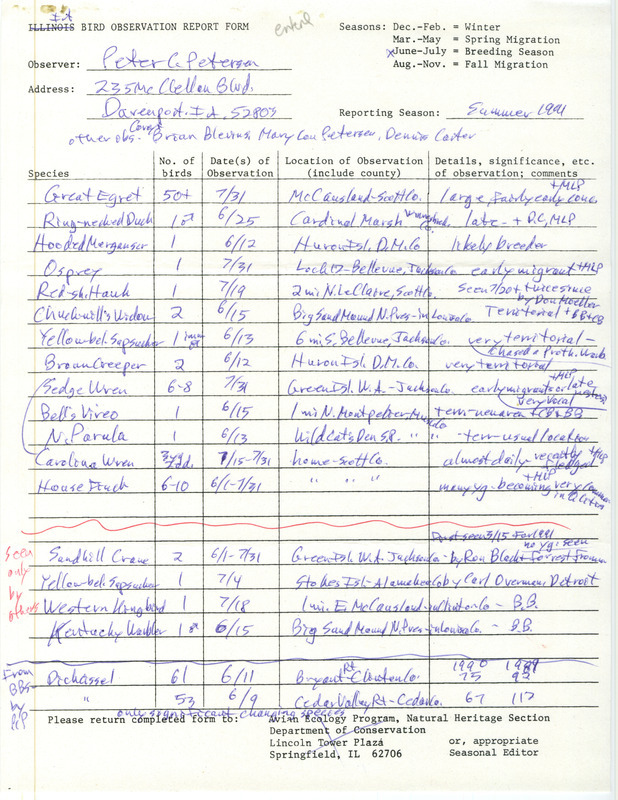 IA
ILLINOIS BIRD OBSERVATION REPORT FORM
Seasons: Dec.-Feb. = Winter
Mar.-May = Spring Migration
xJune-July = Breeding Season
Aug.-Nov. = Fall Migration
Observer: Peter C. Petersen
Address: 235 McClellan Blvd.
Davenport, Ia. 52803
Reporting Season: Summer 1991
other obs. Brian Blevins, Mary Lou Petersen, Dennis Carter
Species No. of birds Date(s) of Observation Location of Observation (include county) Details, significance, etc. of observation; comments
Great Egret 50+ 7/31 McCausland-Scott Co. large, fairly early conc. +MLP
Ring-necked Duck 1♂ 6/25 Cardinal Marsh Winneshiek Co. late - + D.C, MLP
Hooded Merganser 1 6/12 Huron Isl. D.M. Co likely breeder
Osprey 1 7/31 Lock 12-Bellevue, Jackson Co early migrant +MLP
Red-sh. Hawk 1 7/19 2 mi N. LeClaire, Scott Co. seen 7/20 + twice since by Don Moeller
Chuck-will's Widow 2 6/15 Big Sand Mound N. Pres-in Louisa Co. Territorial + BB+CB
Yellow-bel. Sapsucker 1 imm ♂ 6/13 6 mi S. Bellevue, Jackson Co. very territorial - chased a Proth. Warb.
Brown Creeper 2 6/12 Huron Isl. D.M. Co. very territorial
Sedge Wren 6-8 7/31 Green Isl. W.A. - Jackson Co. early migrants or late nesters +MLP Very Vocal
Bell's Vireo 1 6/15 1 mi N. Montpelier, Musc. Co terr-new area + CB+BB
N. Parula 1 6/13 Wildcat Den S.P. " " -terr-usual location
Carolina Wren 7/15-7/31 home-Scott Co. almost daily recently fledged +MLP
House Finch 6-10 6/1-7/31 " " " many yg. - becoming very common in cities +MLP
seen only by others
first seen 3/15 for 1991
no yg. seen
Sandhill Crane 2 6/1-7/31 Green Isl. W.A. Jackson Co. - by Ron Black + Forrest
Yellow-bel. Sapsucker 1 7/4 Stokes Isl-Allamakee Co by Carl Overman, Detroit
Western Kingbird 1 7/18 1 mi. E. McCausland-in Clinton Co - B.B.
Kentucky Warbler 1♂ 6/15 Big Sand Mound N. Pres-in Louisa Co. - B.B.
From BBS- by PCP
1990 1989
Dickcissel 61 6/11 Bryant Rt-Clinton Co. 75 92
" 53 6/9 Cedar Valley Rt-Cedar Co. 67 112
only significant changing species
Please return completed form to: Avian Ecology Program, Natural Heritage Section
Department of Conservation
Lincoln Tower Plaza or, appropriate
Springfield, IL 62706 Seasonal Editor